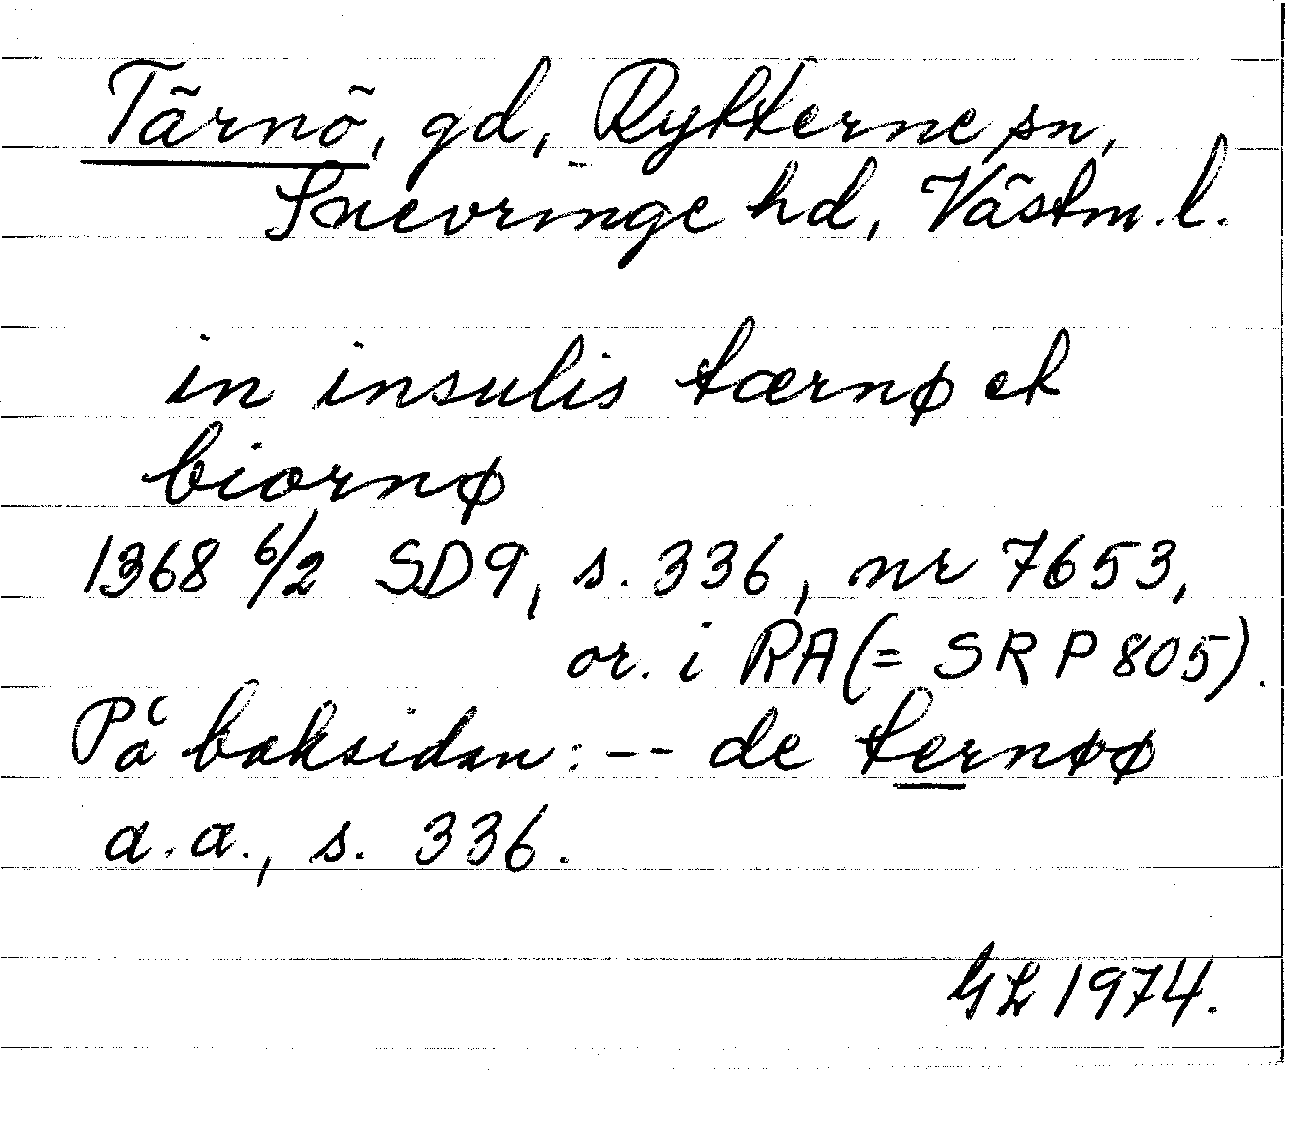 Tärnö, gd, Rytterne sn,
Snevringe hd, Västm. l.
in insulis tærnø et
biornø
1368 6/2 SD9, s. 336, nr 7653,
or. i RA (= SRP 805).
På baksidan: -- de ternøø
a.a., s. 336.
GL 1974.